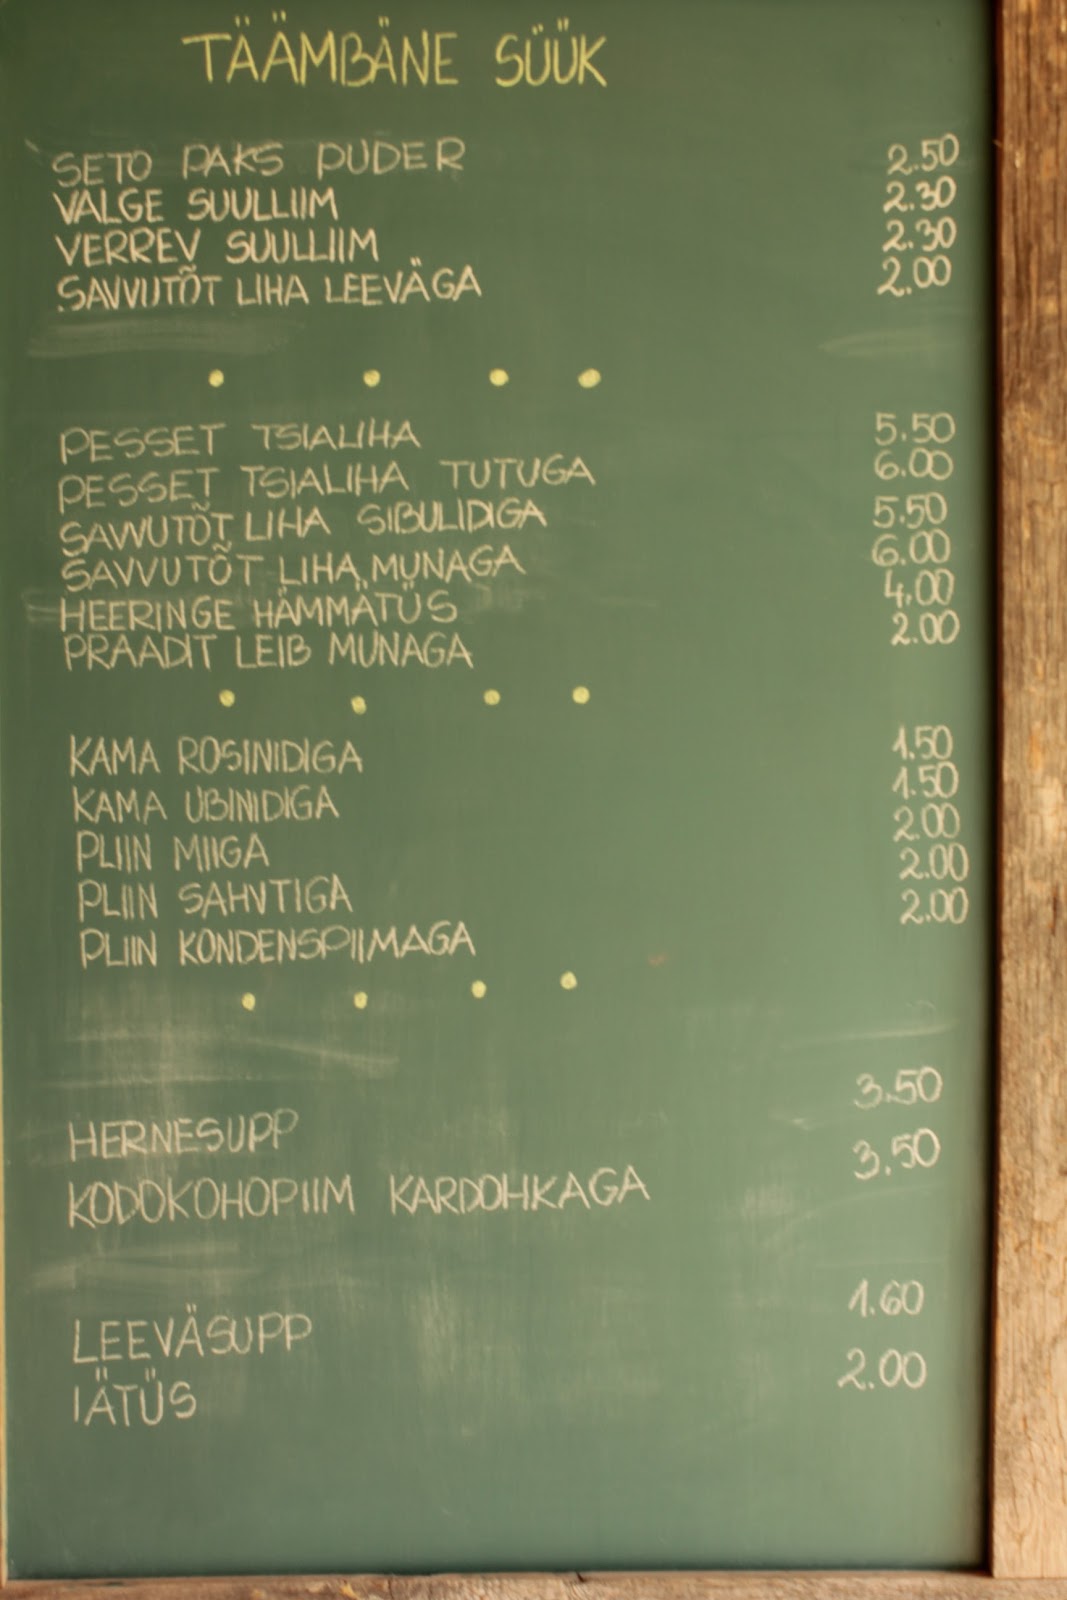 TÄÄMBÄNE SÜÜK
SETO PAKS PUDER 2.50
VALGE SUULLIIM 2.30
VERREV SUULLIIM 2.30
SAVVUTÕT LIHA LEEVÄGA 2.00
PESSET TSIALIHA 5.50
PESSET TSIALIHA TUTUGA 6.00
SAVVUTÕT LIHA SIBULIDIGA 5.50
SAVVUTÕT LIHA MUNAGA 6.00
HEERINGE HÄMMÄTÜS 4.00
PRAADIT LEIB MUNAGA 2.00
KAMA ROSINIDIGA 1.50
KAMA UBINIDIGA 1.50
PLIIN MIIGA 2.00
PLIIN SAHVTIGA 2.00
PLIIN KONDENSPIIMAGA 2.00
HERNESUPP 3.50
KODOKOHOPIIM KARDOHKAGA 3.50
LEEVÄSUPP 1.60
IÄTÜS 2.00